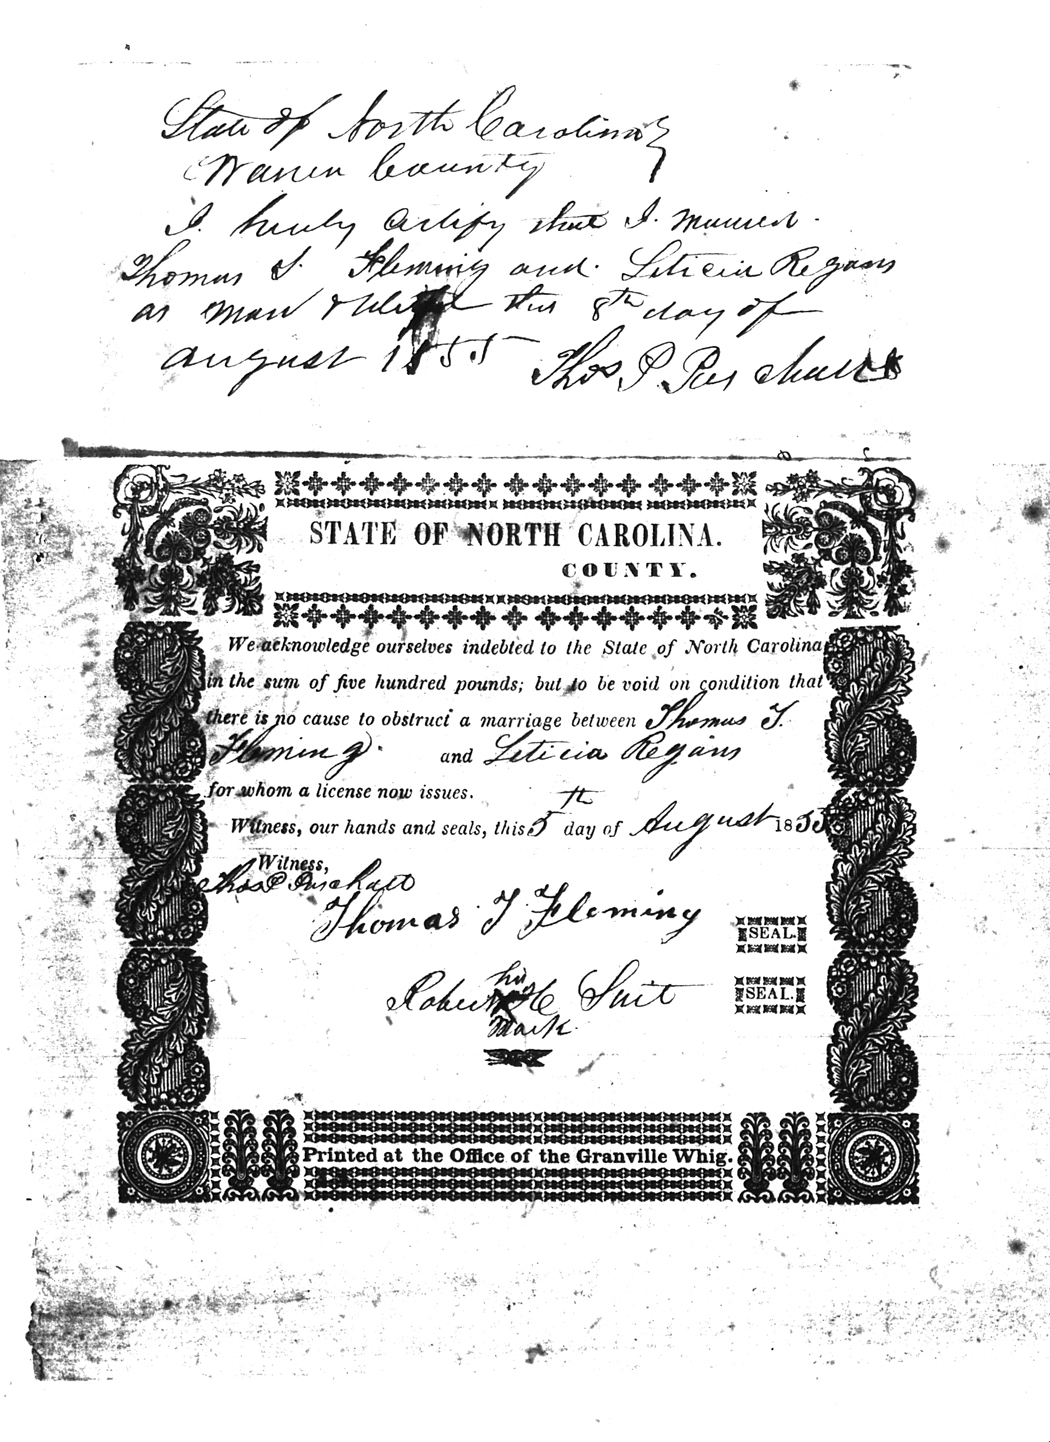 State of North Carolina
Warren County
I. hereby certify that I. married.
Thomas J. Fleming and. Leticia Regans
as man & wife this 8th day of
august 1855 Thos P Paschall
STATE OF NORTH CAROLINA.
COUNTY.
We acknowledge ourselves indebted to the State of North Carolina
in the sum of five hundred pounds; but to be void on condition that
there is no cause to obstruct a marriage between Thomas J.
Fleming. and Leticia Regans
for whom a license now issues.
Witness, our hands and seals, this 5th day of August 1855
Witness,
Thos P Paschall
Thomas J Fleming SEAL.
his
Robert X H Suit SEAL.
mark.
Printed at the Office of the Granville Whig.